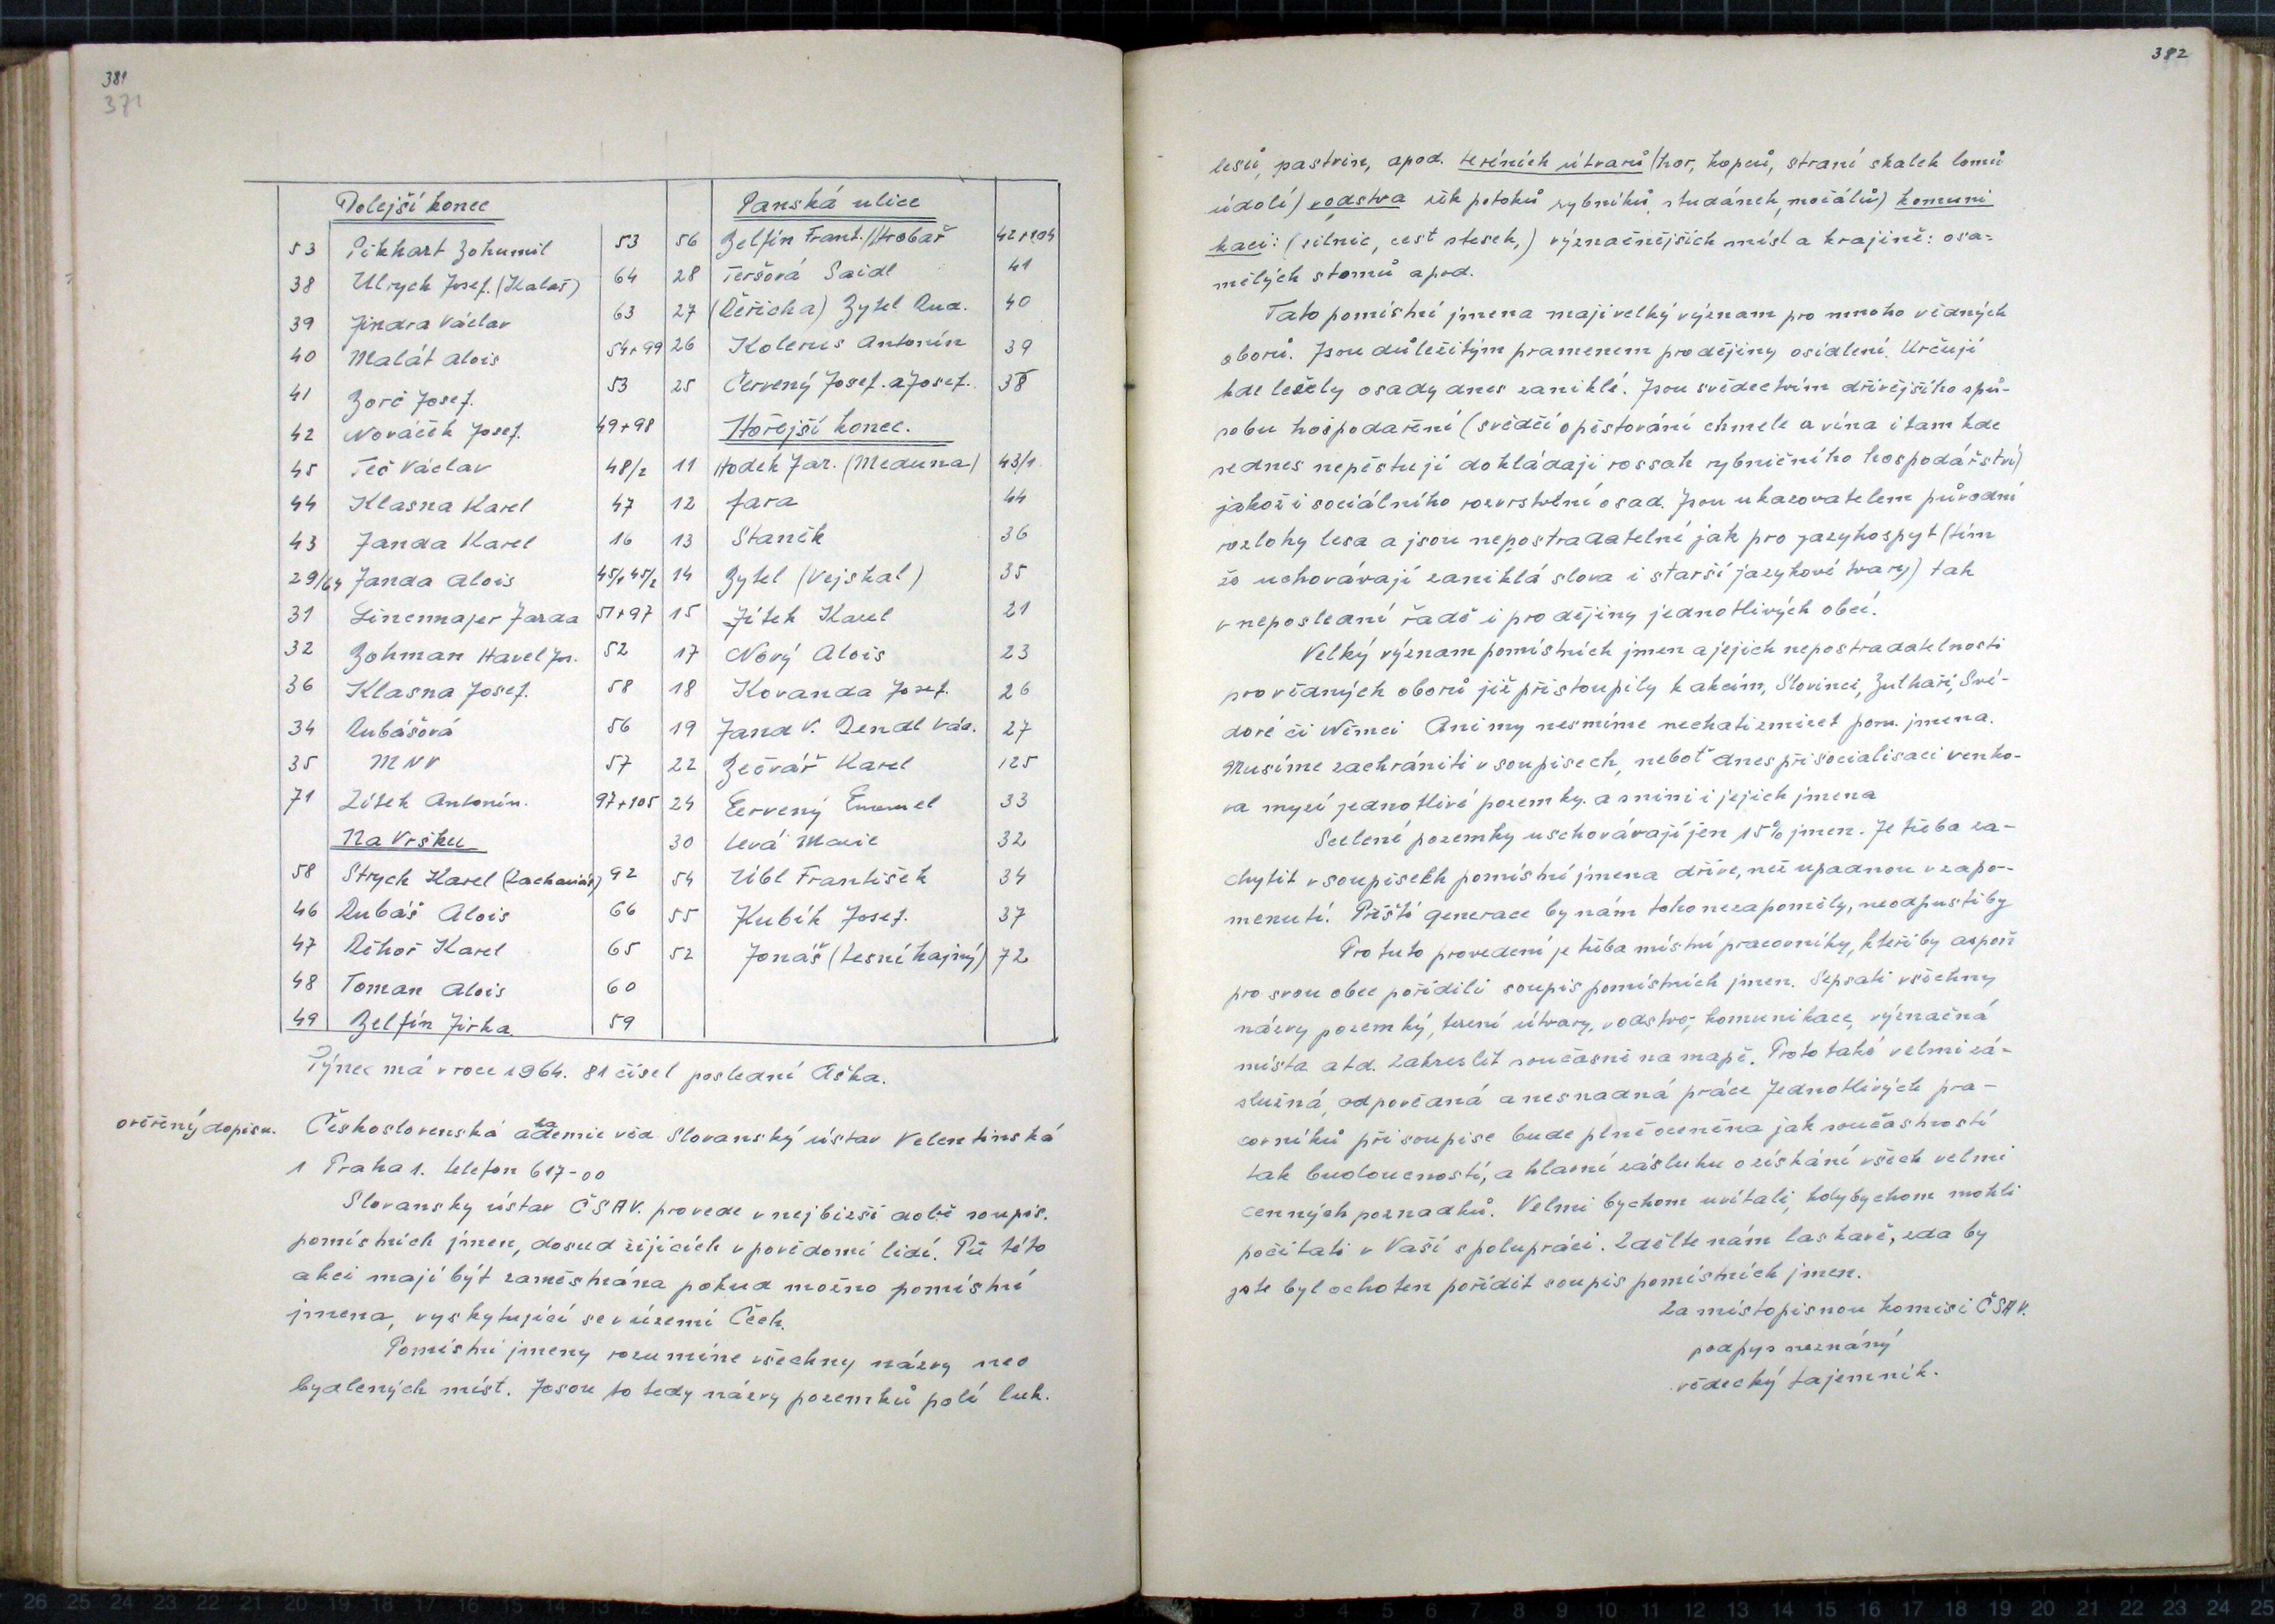 381
371
Dolejší konec
53 Pikhart Bohumil 53
38 Ulrych Josef. (Kalaš) 64
39 Jindra Václav 63
40 Malát Alois 54+99
41 Borč Josef. 53
42 Nováček Josef. 49+98
45 Teč Václav 48/2
44 Klasna Karel 47
43 Janda Karel 16
29/64 Janda Alois 45/1 45/2
31 Linenmajer Jarda 51+97
32 Bohman Havel Jos. 52
36 Klasna Josef. 58
34 Dubášová 56
35 MNV 57
71 Zítek Antonín. 97+105
Na Vršku
58 Strych Karel (Zachariáš) 92
46 Dubáš Alois 66
47 Řehoř Karel 65
48 Toman Alois 60
49 Belfín Jirka 59
Panská ulice
56 Belfín Frant. (Hrobař 42+104
28 Teršová Saidl 41
27 (Řeřicha) Bytel Rud. 40
26 Kolenus Antonín 39
25 Červený Josef. a Josef. 38
Hořejší konec.
11 Hodek Jar. (Meduna) 43/1
12 fara 44
13 Staněk 36
14 Bytel (Vejskal) 35
15 Jítek Karel 21
17 Nový Alois 23
18 Kovanda Josef. 26
19 Jand V. Rendl Vác. 27
22 Bečvář Karel 125
24 Červený Emanuel 33
30 Levá Marie 32
54 Uibl František 34
55 Kubík Josef. 37
52 Jonáš (lesní hajný) 72
Týnec má v roce 1964. 81 čísel poslední Aška.
ověřený dopisu.
Československá akademie věd Slovanský ústav Velentinská
1 Praha 1. telefon 617-00
Slovansky ústav ČSAV. provede v nejbižší době soupis.
pomístních jmen, dosud žijících v povědomí lidí. Při této
akci mají být zaměstnána pokud možno pomístní
jmena, vyskytující se v území Čech.
Pomístní jmeny rozumíne všechny názvy neo
bydlených míst. Jsou to tedy názvy pozemků polí luk.
382
lesů, pastvin, apod. teréních útvarů (hor, kopců, straní skalek lomů
údolí) vodstva řek potoků rybníků, studánek, močálů) komuni
kací: (silnic, cest stesek,) význačnějších míst a krajině: osa=
mělých stomů apod.
Tato pomístní jmena mají velký význam pro mnoho vědných
oborů. Jsou důležitým pramenem pro dějiny osídlení. Určují
kde ležely osady dnes zaniklé. Jsou svědectvím dřívějšího spů-
sobu hospodaření (svědčí o pěstování chmele a vína i tam kde
se dnes nepěstují dokládají rossah rybničního hospodářství)
jakož i sociálního rozvrstvení osad. Jsou ukazovatelem původní
rozlohy lesa a jsou nepostradatelní jak pro jazykospyt (tím
že uchovávají zaniklá slova i starší jazykové tvary) tak
v neposlední řadě i pro dějiny jednotlivých obcí.
Velký význam pomístních jmen a jejich nepostradatelnosti
pro vědných oborů již přistoupily k akcím, Slovinci, Bulhaři, Své-
dové či Němci Ani my nesmíme nechati zmizet pom. jmena.
Musíme zachrániti v soupisech, neboť dnes při socialisaci venko-
va myzí jednotlivé pozemky. a s nimi i jejich jmena
Scelené pozemky uschovávají jen 15% jmen. Je třeba za-
chytit v soupisech pomístní jmena dříve, než upadnou v zapo-
menutí. Příští generace by nám toho nezapoměly, neodpustiby
Pro tuto provedení je třeba místní pracovníky, kteří by aspoň
pro svou obec pořídili soupis pomístních jmen. Sepsati všechny
názvy pozemký, terení útvary, vodstvo, komunikace, význačná
místa atd. zakreslit současně na mapě. Proto také velmi zá-
služná, odpovědná a nesnadná práce jednotlivých pra-
covníků při soupise bude plně oceněna jak součastností
tak budoucností, a hlavní zásluhu o získání všech velmi
cenných poznadků. Velmi bychom uvítali, kdybychom mohli
počítati v Vaší spolupráci. Zdělte nám laskavě, zda by
jste byl ochoten pořídit soupis pomístních jmen.
Za místopisnou komisi ČSAV.
podpys neznáný
vědecký tajemník.